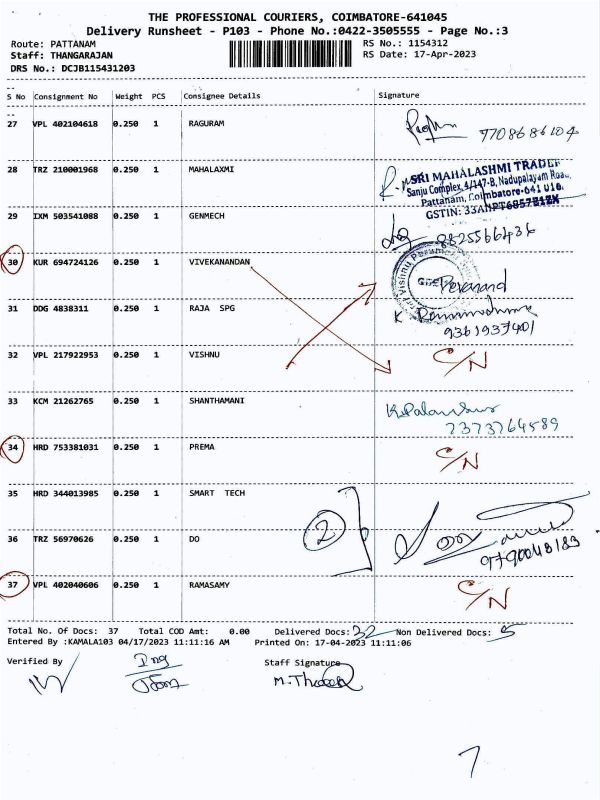 THE PROFESSIONAL COURIERS, COIMBATORE-641045
Delivery Runsheet - P103 - Phone No.:0422-3505555 - Page No.:3
Route: PATTANAM
RS No.: 1154312
Staff: THANGARAJAN
RS Date: 17-Apr-2023
DRS No.: DCJB115431203
S No Consignment No Weight PCS Consignee Details Signature
27 VPL 402104618 0.250 1 RAGURAM
7708686104
28 TRZ 210001968 0.250 1 MAHALAXMI
SRI MAHALASHMI TRADER
Sanju Complex, 4/147-B, Nadupalayam Road,
Pattanam, Coimbatore-641 016.
GSTIN: 33
29 IXM 503541088 0.250 1 GENMECH
9825566436
30 KUR 694724126 0.250 1 VIVEKANANDAN
31 DDG 4838311 0.250 1 RAJA SPG
9361937401
32 VPL 217922953 0.250 1 VISHNU
C/N
33 KCM 21262765 0.250 1 SHANTHAMANI
7373764589
34 HRD 753381031 0.250 1 PREMA
C/N
35 HRD 344013985 0.250 1 SMART TECH
2
36 TRZ 56970626 0.250 1 DO
9790048183
37 VPL 402040606 0.250 1 RAMASAMY
C/N
Total No. Of Docs: 37 Total COD Amt: 0.00 Delivered Docs: 32 Non Delivered Docs: 5
Entered By :KAMALA103 04/17/2023 11:11:16 AM Printed On: 17-04-2023 11:11:06
Verified By
Staff Signature
7